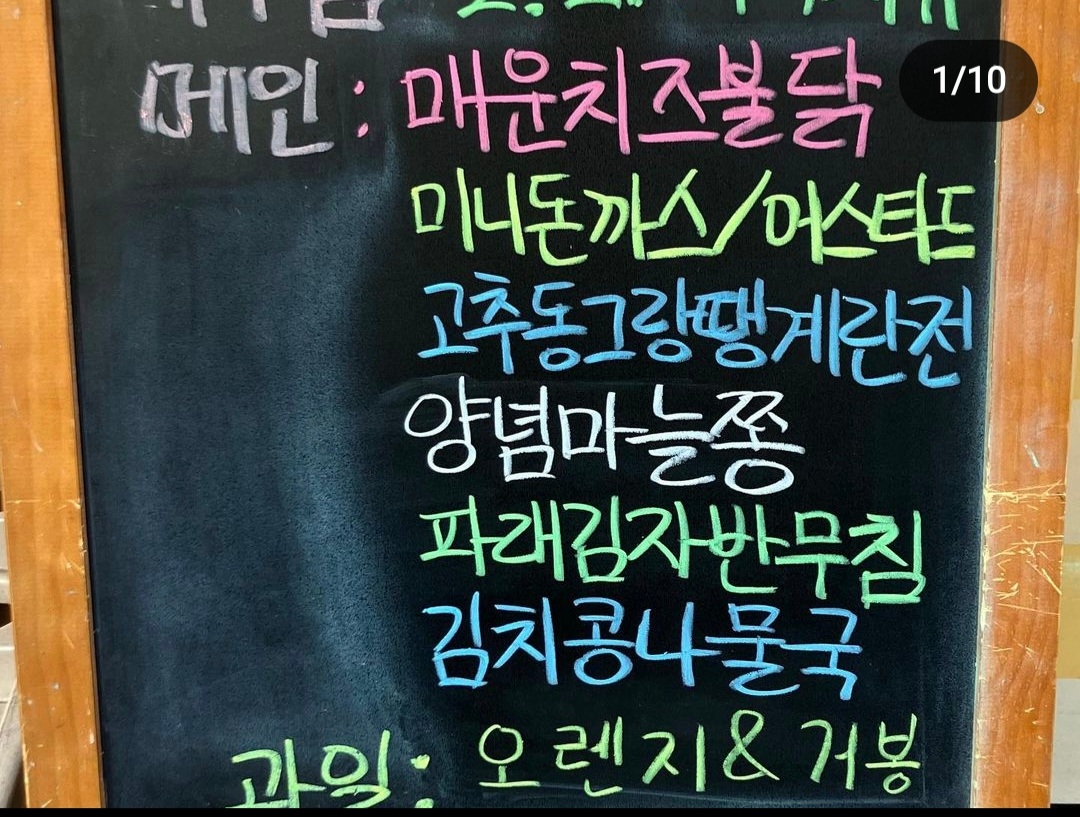 1/10
메인 : 매운치즈불닭
미니돈까스/머스타드
고추동그랑땡계란전
양념마늘쫑
파래김자반무침
김치콩나물국
과일: 오렌지&거봉